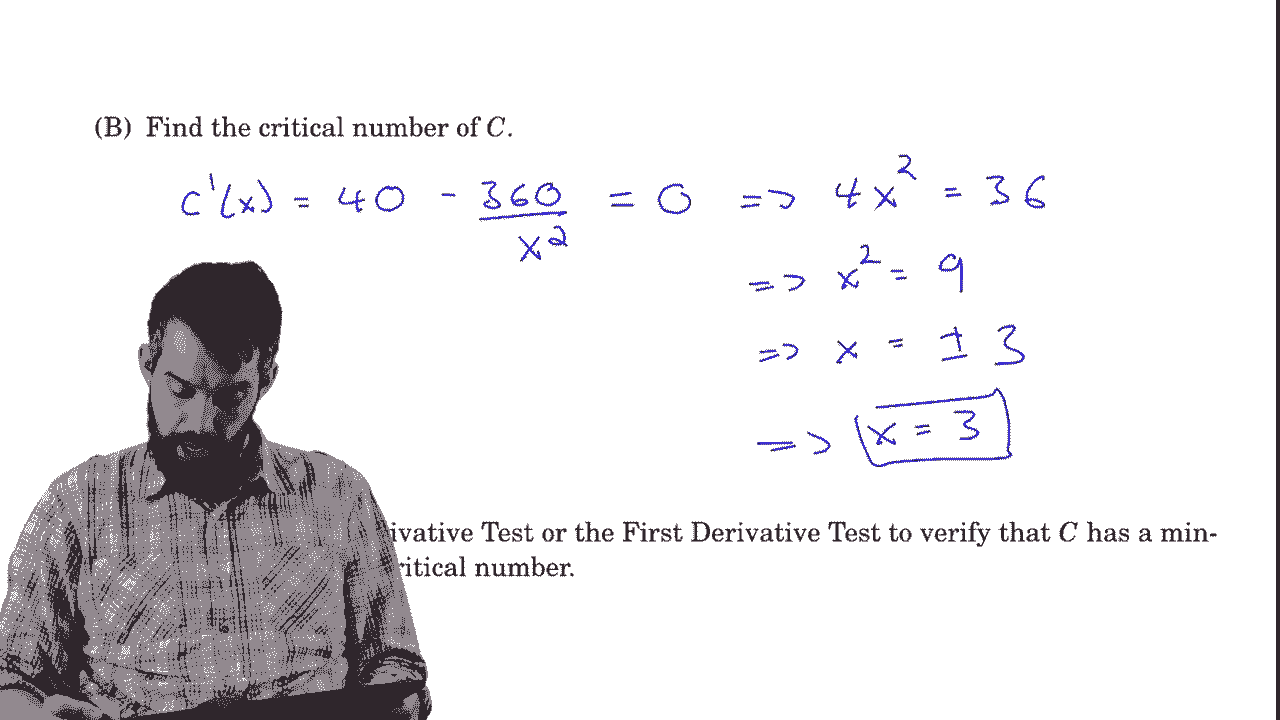 (B) Find the critical number of C.
C'(x) = 40 - 360/x² = 0 => 4x² = 36
=> x² = 9
=> x = ± 3
=> x = 3
Test or the First Derivative Test to verify that C has a min-
number.